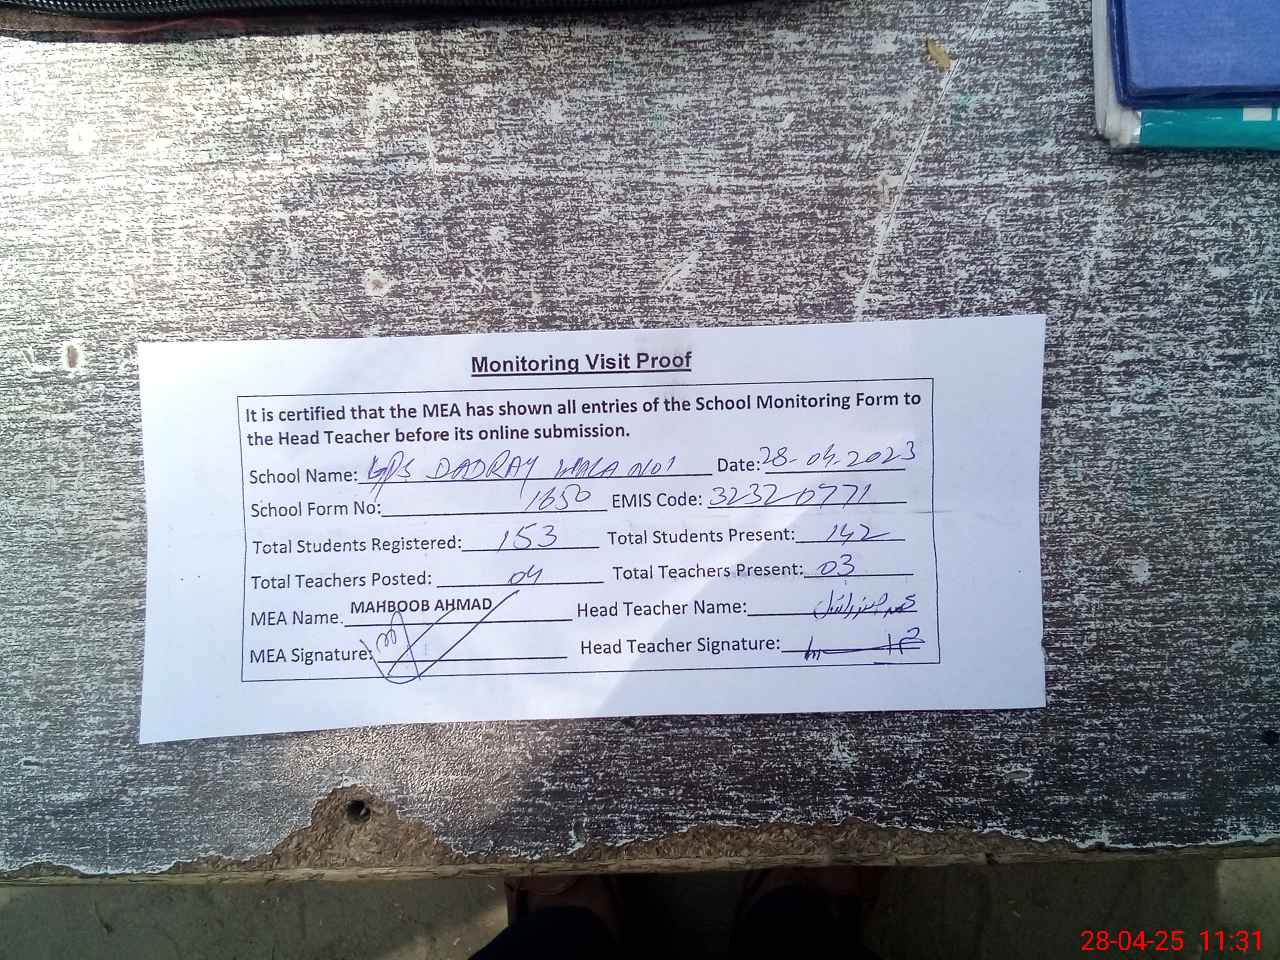 Monitoring Visit Proof
It is certified that the MEA has shown all entries of the School Monitoring Form to
the Head Teacher before its online submission.
School Name: GPS DADRAY WALA NO1 Date: 28-04-2023
School Form No: 1650 EMIS Code: 32320771
Total Students Registered: 153 Total Students Present: 142
Total Teachers Posted: 04 Total Teachers Present: 03
MEA Name. MAHBOOB AHMAD Head Teacher Name:
MEA Signature: Head Teacher Signature:
28-04-25 11:31